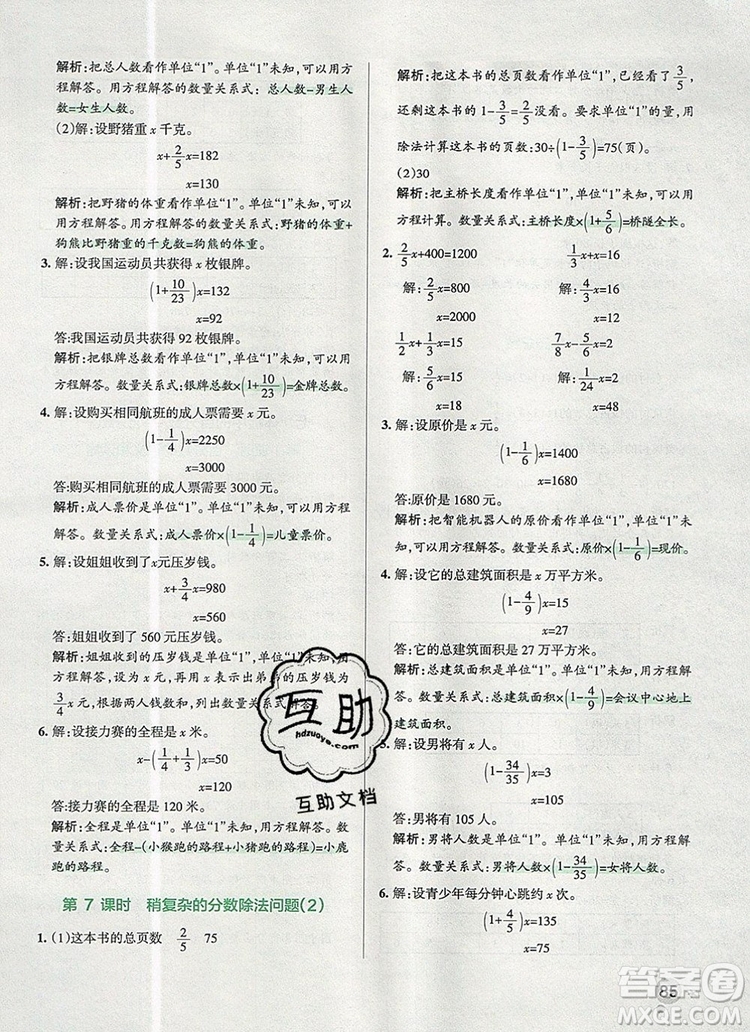 解析:把总人数看作单位“1”。单位“1”未知,可以用方
程解答。用方程解答的数量关系式:总人数-男生人
数=女生人数。
(2)解:设野猪重 x 千克。
x+2/5x=182
x=130
解析:把野猪的体重看作单位“1”,单位“1”未知,可以
用方程解答。用方程解答的数量关系式:野猪的体重+
狗熊比野猪重的千克数=狗熊的体重。
3. 解:设我国运动员共获得 x 枚银牌。
(1+10/23)x=132
x=92
答:我国运动员共获得 92 枚银牌。
解析:把银牌总数看作单位“1”,单位“1”未知,可以用
方程解答。数量关系式:银牌总数×(1+10/23)=金牌总数。
4. 解:设购买相同航班的成人票需要 x 元。
(1-1/4)x=2250
x=3000
答:购买相同航班的成人票需要 3000 元。
解析:成人票价是单位“1”。单位“1”未知,可以用方程
解答。数量关系式:成人票价×(1-1/4)=儿童票价。
5. 解:设姐姐收到了x元压岁钱。
x+3/4x=980
x=560
答:姐姐收到了 560 元压岁钱。
解析:姐姐收到的压岁钱是单位“1”,单位“1”未知,用
方程解答,设为 x 元,再用 x 表示出弟弟的压岁钱为
3/4x 元,根据两人钱数和,列出数量关系式解答。
6. 解:设接力赛的全程是 x 米。
x-(1/4+1/3)x=50
x=120
答:接力赛的全程是 120 米。
解析:全程是单位“1”。单位“1”未知,用方程解答。数量
关系式:全程-(小猴跑的路程+小猪跑的路程)=小鹿
跑的路程。
第 7 课时 稍复杂的分数除法问题(2)
1. (1)这本书的总页数 2/5 75
解析:把这本书的总页数看作单位“1”,已经看了3/5,
还剩这本书的 1-3/5=2/5没有看。要求单位“1”,用
除法计算这本书的页数:30÷(1-3/5)=75(页)。
(2)30
解析:把主桥长度看作单位“1”。单位“1”未知,可以用
方程计算。数量关系式:主桥长度×(1+5/6)=桥隧全长。
2. 2/5x+400=1200 1/3x+x=16
解:2/5x=800 解:4/3x=16
x=2000 x=12
1/2x+1/3x=15 7/8x-5/6x=2
解:5/6x=15 解:1/24x=2
x=18 x=48
3. 解:设原价是 x 元。
(1-1/6)x=1400
x=1680
答:原价是 1680 元。
解析:把智能机器人的原价看作单位“1”,单位“1”未
知,可以用方程解答。数量关系式:原价×(1-1/6)=现价。
4. 解:设它的总建筑面积是 x 万平方米。
(1-4/9)x=15
x=27
答:它的总建筑面积是 27 万平方米。
解析:总建筑面积是单位“1”,单位“1”未知,用方程解
答。数量关系式:总建筑面积×(1-4/9)=会议中心地上
建筑面积。
5. 解:设男将有 x 人。
(1-34/35)x=3
x=105
答:男将有 105 人。
解析:男将人数是单位“1”,单位“1”未知,用方程解答。
数量关系式:男将人数×(1-34/35)=女将人数。
6. 解:设青少年每分钟心跳约 x 次。
(1+4/5)x=135
x=75
互助
hdzuoye.com
互助文档
85
答案圈
MXQE.COM